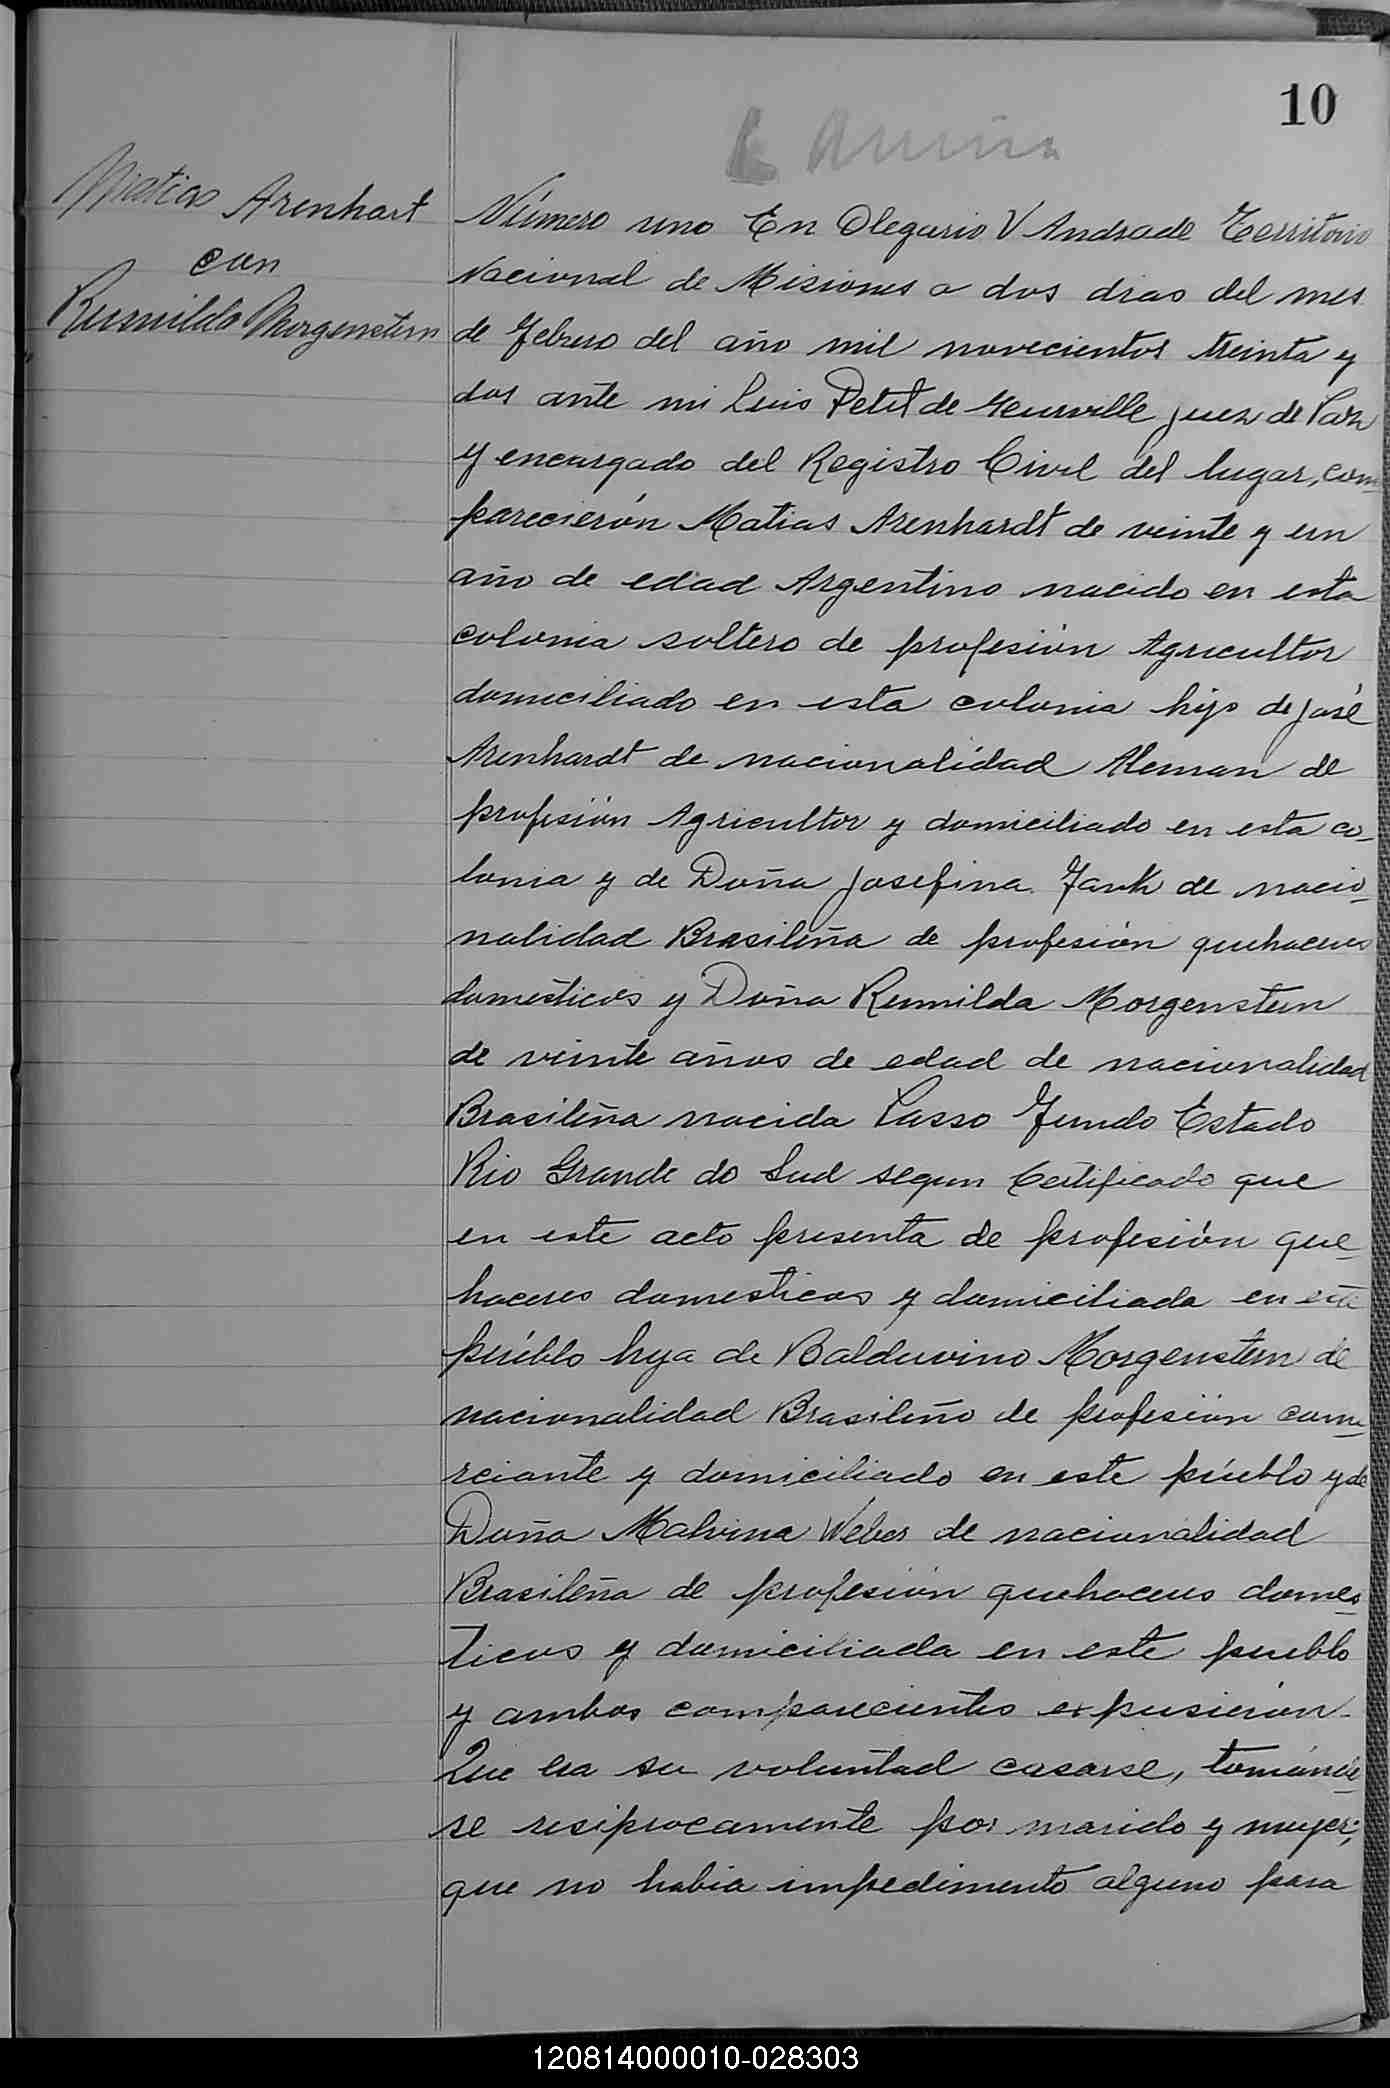 10
Matias Arenhart
con
Rumilda Morgenstern
Número uno En Olegario V Andrade Territorio
Nacional de Misiones a dos dias del mes
de Febrero del año mil novecientos treinta y
dos ante mi Luis Petit de Meurville juez de Paz
y encargado del Registro Civil del lugar, com-
parecierón Matias Arenhardt de veinte y un
año de edad Argentino nacido en esta
colonia soltero de profesión Agricultor
domiciliado en esta colonia hijo de José
Arenhardt de nacionalidad Aleman de
profisión Agricultor y domiciliado en esta co-
lonia y de Doña Josefina Fank de nacio-
nalidad Brasileña de profesión quehaceres
domesticos y Doña Rumilda Morgenstern
de veinte años de edad de nacionalidad
Brasileña nacida Passo Fundo Estado
Rio Grande do Sud segun Certificado que
en este acto presenta de profesión que-
haceres domesticos y domiciliada en este
pueblo hija de Balduvino Morgenstern de
nacionalidad Brasileño de profesión come-
rciante y domiciliado en este pueblo y de
Doña Malvina Weber de nacionalidad
Brasileña de profesión quehaceres domes-
ticos y domiciliada en este pueblo
y ambos comparecientes expusierón-
Que era su voluntad casarse, tománd-
se resiprocamente por marido y mujer;
que no habia impedimento alguno para
120814000010-028303